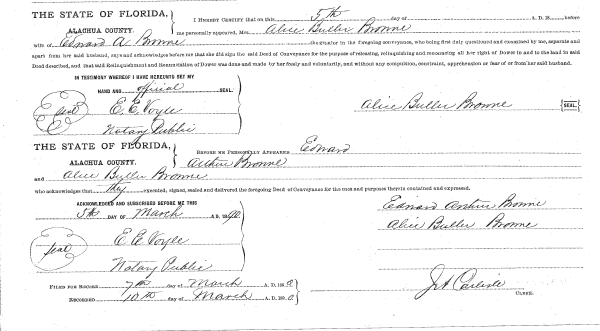 THE STATE OF FLORIDA, I HEREBY CERTIFY that on this 5th day of A. D. 18 before
ALACHUA COUNTY. me personally appeared, Mrs. Alice Butler Browne
wife of Edward A. Browne the grantor in the foregoing conveyance, who being first duly questioned and examined by me, separate and
apart from her said husband, say and acknowledges before me that she did sign the said Deed of Conveyance for the purpose of releasing, relinquishing and renouncing all her right of Dower in and to the land in said
Deed described, and that said Relinquishment and Renunciation of Dower was done and made by her freely and voluntarily, and without any compulsion, constraint, apprehension or fear of or from her said husband.
IN TESTIMONY WHEREOF I HAVE HEREUNTO SET MY
HAND AND official SEAL.
seal E. E. Voyle Alice Butler Browne SEAL.
Notary Public
THE STATE OF FLORIDA, BEFORE ME PERSONALLY APPEARED Edward
ALACHUA COUNTY. Arthur Browne
and Alice Butler Browne
who acknowledges that they executed, signed, sealed and delivered the foregoing Deed of Conveyance for the uses and purposes therein contained and expressed.
ACKNOWLEDGED AND SUBSCRIBED BEFORE ME THIS Edward Arthur Browne
5th DAY OF March A. D. 1890 Alice Butler Browne
seal E. E. Voyle
Notary Public
FILED FOR RECORD 7th day of March A. D. 1890
RECORDED 10th day of March A. D. 1890
J A Carlisle
CLERK.